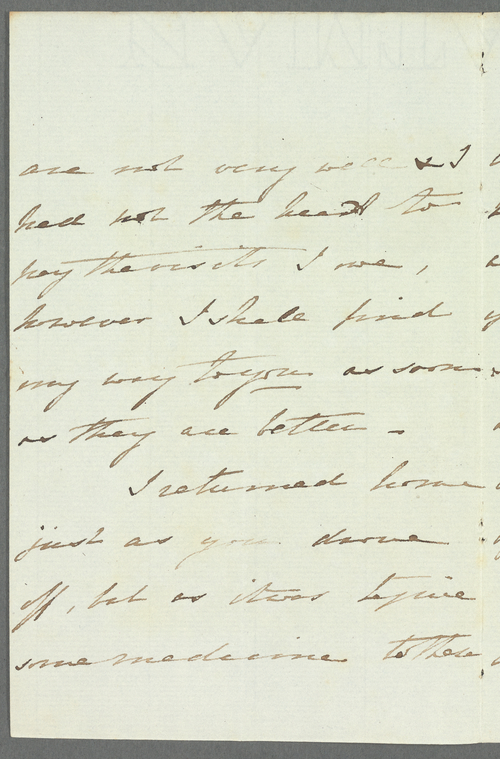 are not very well & I
had not the heart to
pay the visits I owe,
however I shall find
my way to you as soon
as they are better -
I returned home
just as you drove
off, but as it was to give
some medicine to these